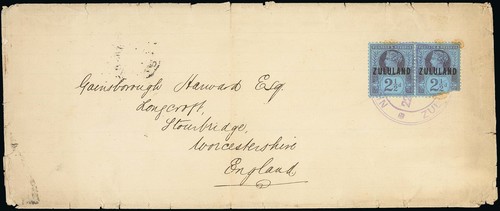 ZULULAND ZULULAND
2½ 2½
Gainsborough Harward Esq.
Longcroft,
Stourbridge,
Worcestershire
England